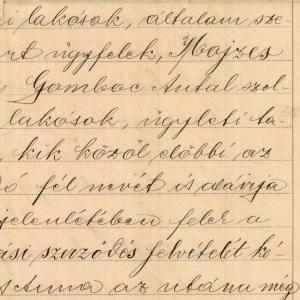 i lakósok, általam sze-
rt ügyfelek, Mojzes
Gomboc Antal szol-
lakósok, ügyleti ta-
kik közől előbbi az
ó fél nevét is aláirja
jelenlétében felér a
ási szerződés felvételét ké-
Anna az utánu még